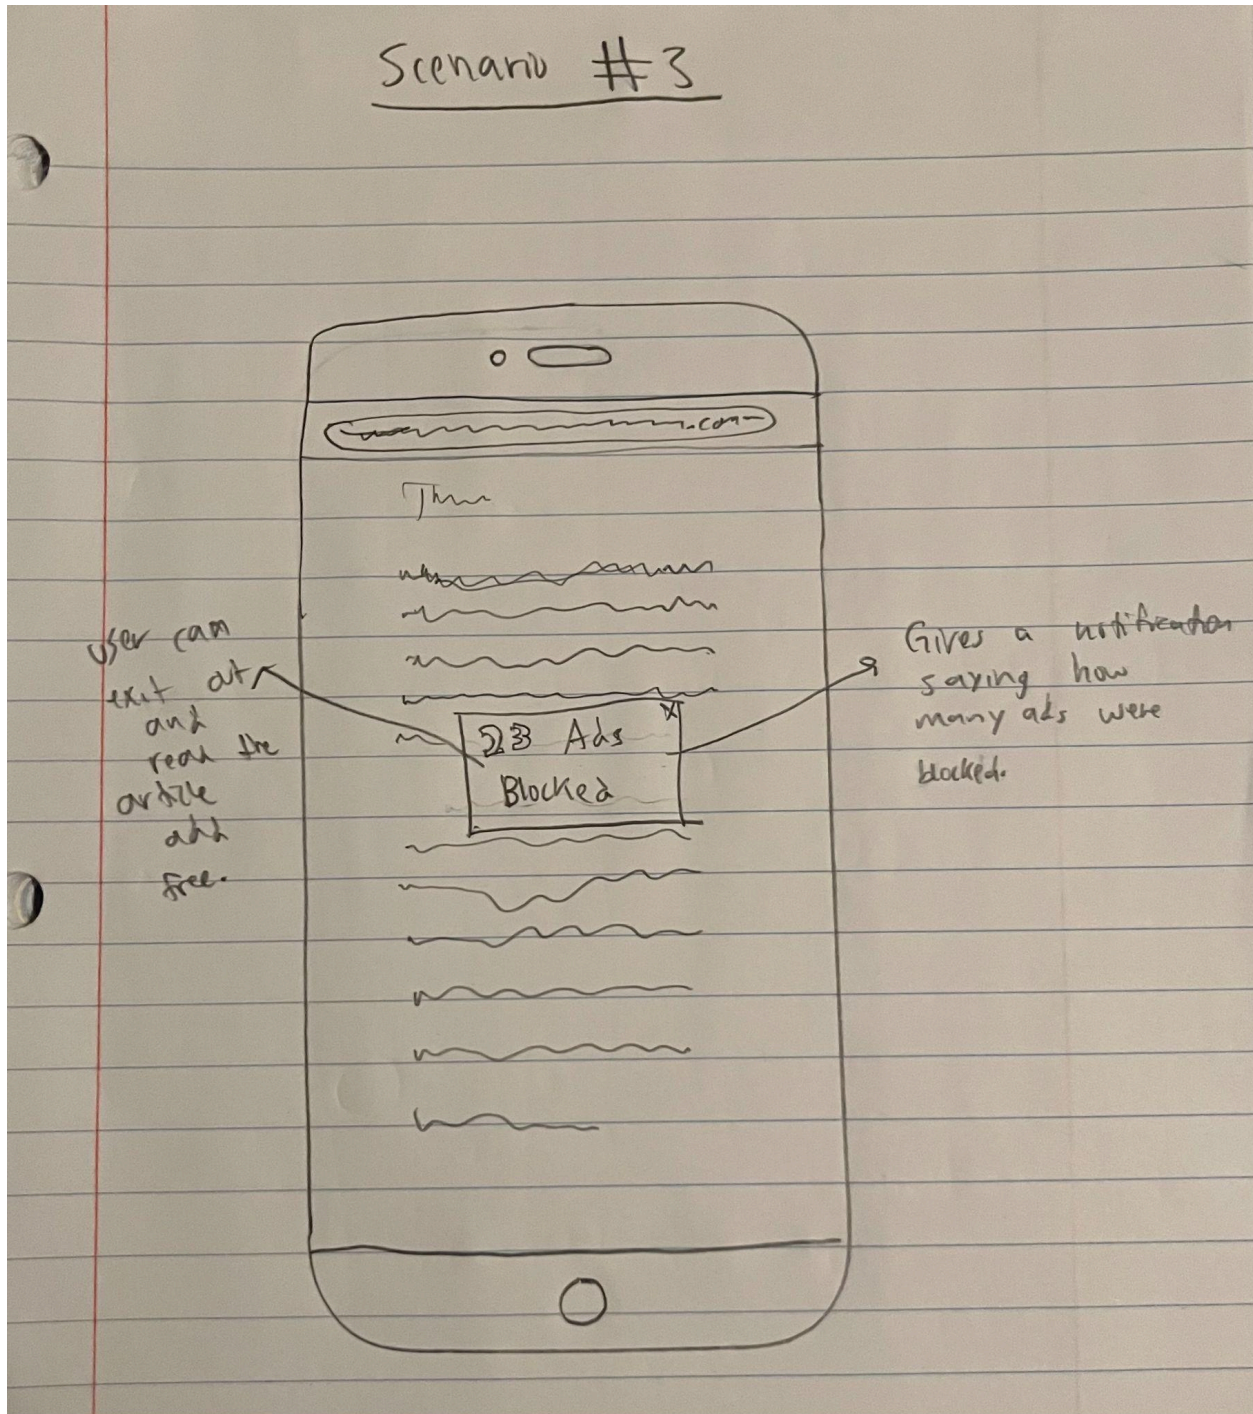 Scenario #3
.com
user can
exit out
and
read the
article
add
free.
23 Ads
X
Blocked
Gives a notification
saying how
many ads were
blocked.